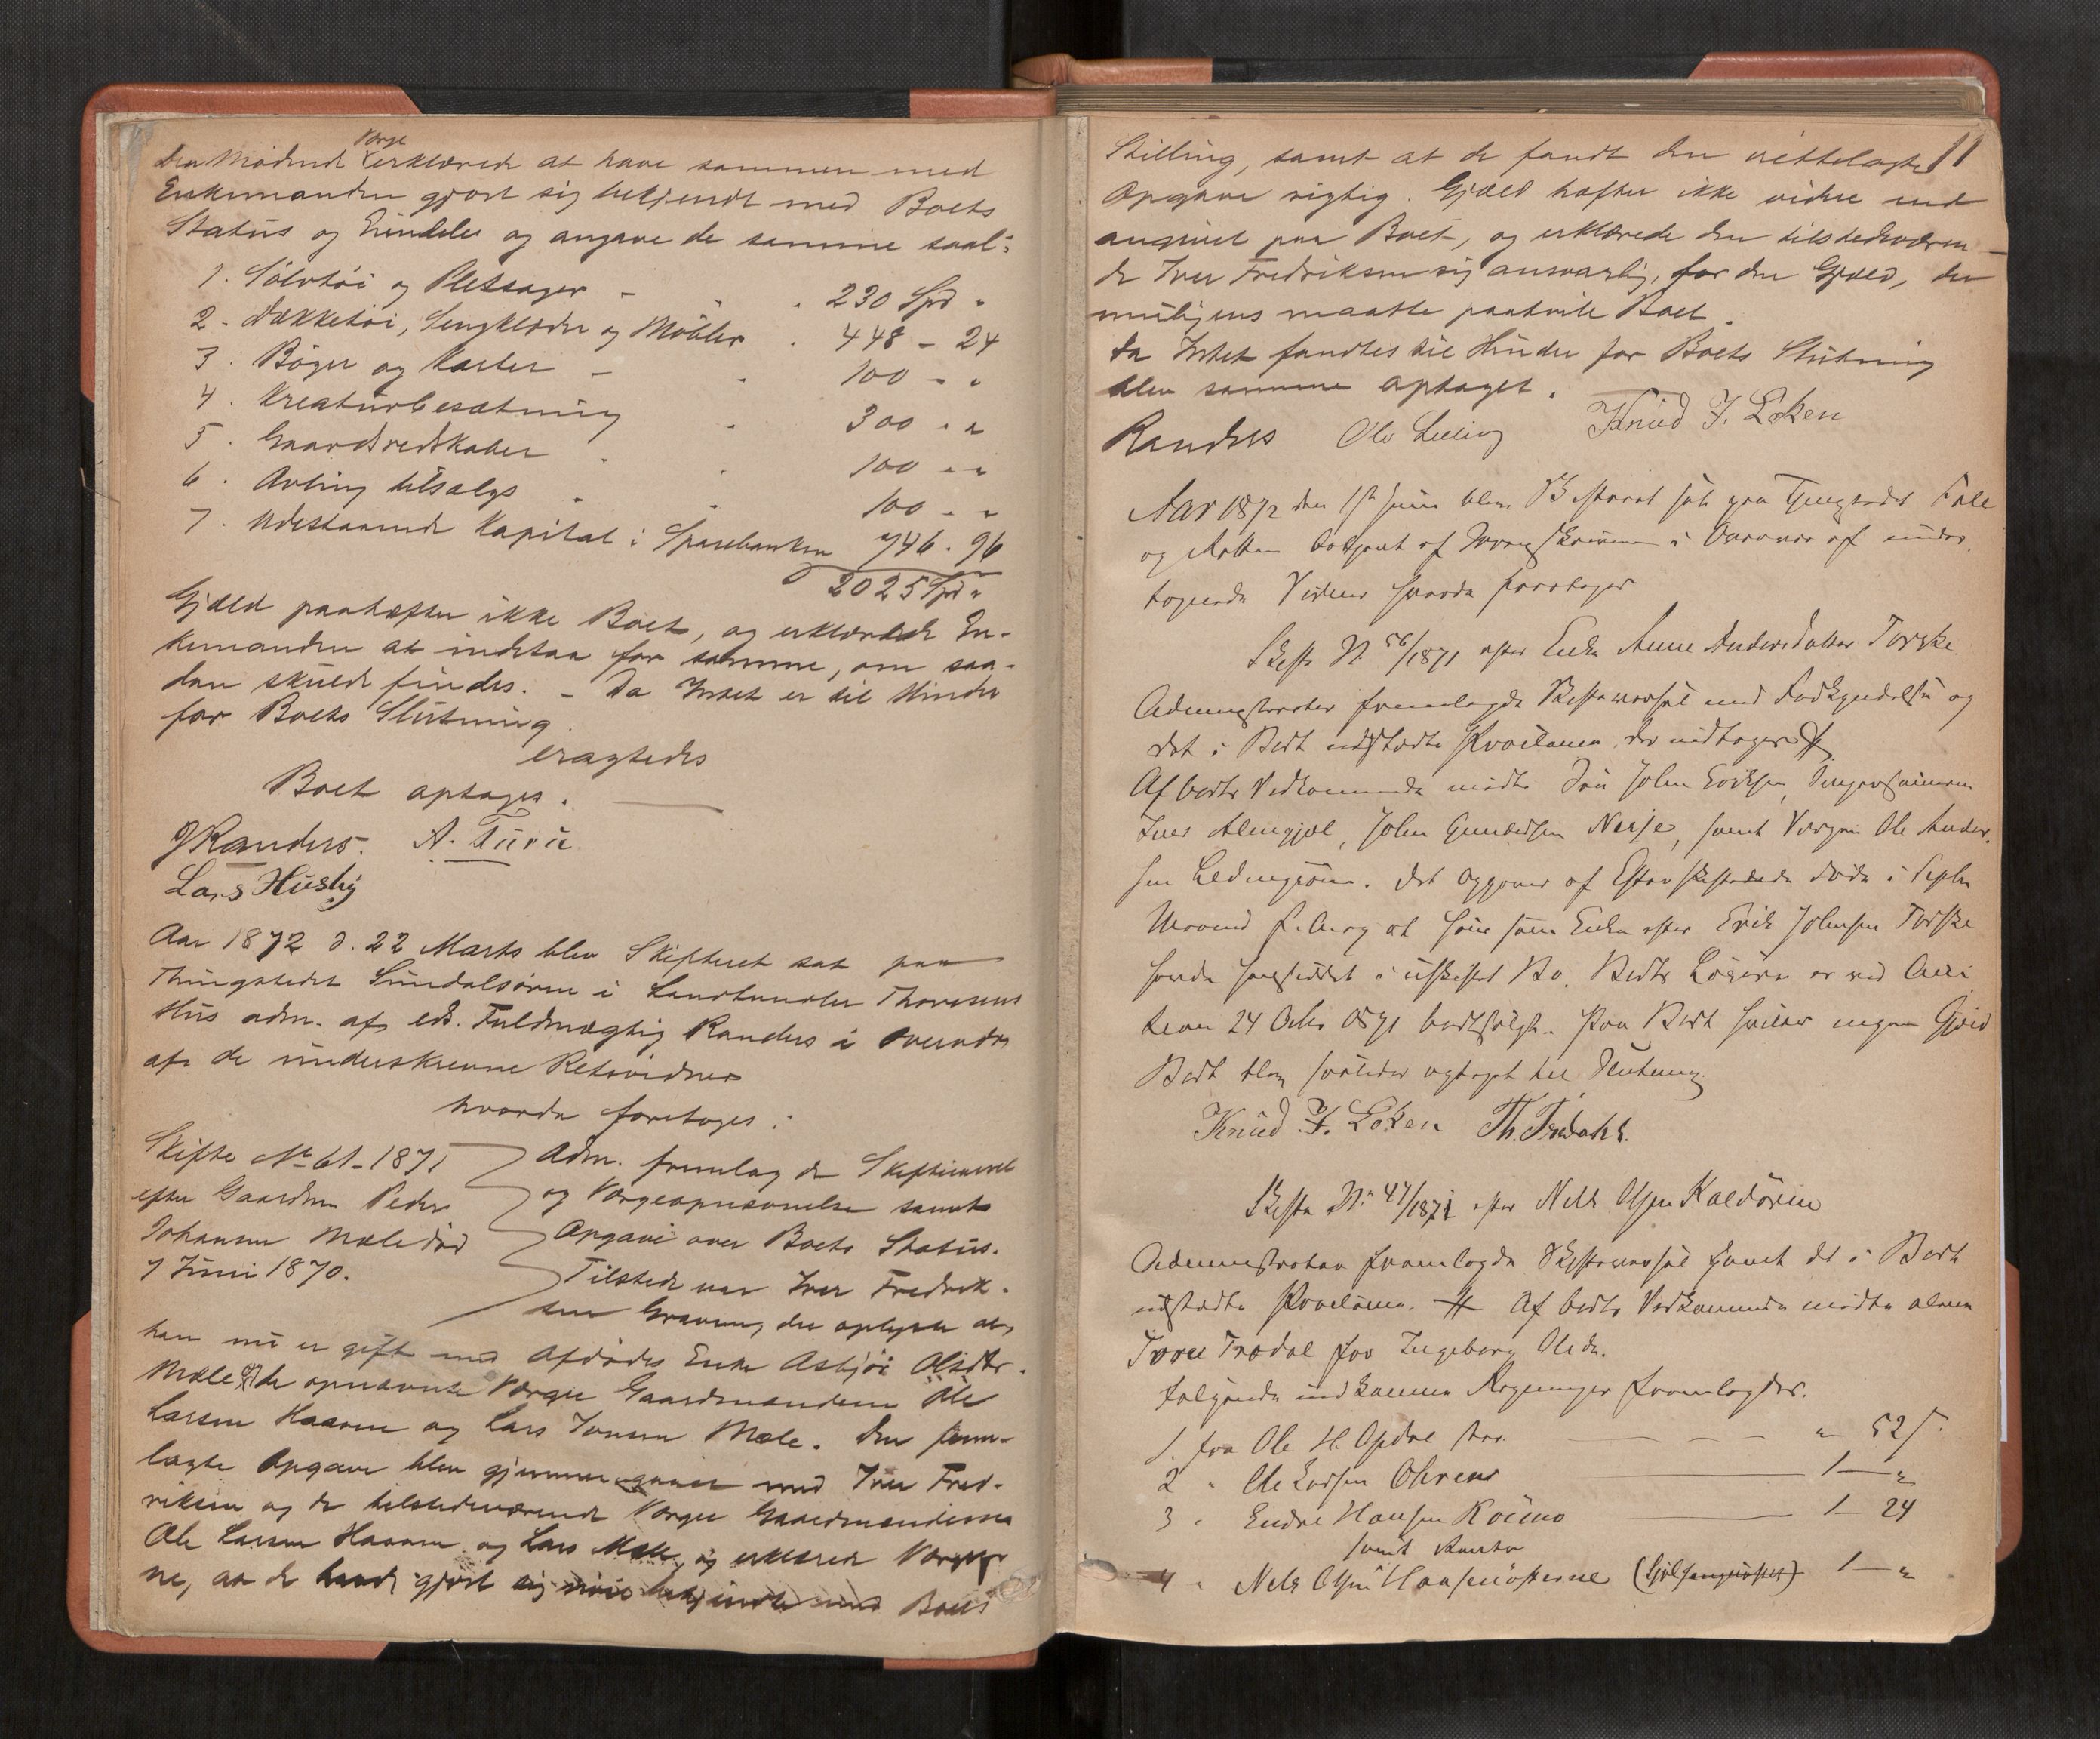 Værge
den Mødende erklærede at have sammen med
Enkemanden gjort sig bekjendt med Boets
Status og Eiendele og angave de samme saal:
1. Sølvtøi og Pletsager - " . 230 Spd "
2. Dækketøi, Sengklæder og Møbler . 448 - 24
3. Bøger og Karter - " 100 - "
4. Kreaturbesætning " 300 - "
5. Gaardsredskaber " " 100 - "
6. Avling tilsalgs " " 100 - "
7. Udestaaende Kapital i Sparebanken 746. 96
2025 Spd "
Gjæld paahæfter ikke Boet, og erklærede En-
kemanden at indstaa for samme, om saa-
dan skulde findes. - Da Intet er til Hinder
for Boets Slutning
eragtedes
Boet optages.
JRanders. A. Furu
Lars Husby
Aar 1872 d. 22 Marts blev Skifteret sat paa
Thingstedet Sundalsøren i Landhandler Thoresens
Hus adm. af edv. Fuldmægtig Randers i Overvær
af de underskrevne Retsvidner
hvorda foretoges:
Skifte No 61-1871
efter Gaardm Peder
Johansen Mæle død
7 Juni 1870.
Adm. fremlagde Skiftevarsel
og Værgeopnævnelse samt
Opgave over Boets Status.
Tilstede var Iver Fredrik-
sen Gravem, der oplyste at
han nu er gift med Afdødes Enke Asbjør Olsdtr.
Mæle og de opnævnte Værger Gaardmændene Ole
Larsen Haaven og Lars Jonsen Mæle. Den frem-
lagte Opgave blev gjennemgaaet med Iver Fred-
riksen og de tilstedeværende Værger Gaardmændene
Ole Larsen Haaven og Lars Mæle, og erklærede Værger-
ne, at de havde gjort sig nøie bekjendte med Boets
11
Stilling, samt at de fandt den rettelagte
Opgave rigtig. Gjæld hæfter ikke videre end
angivet paa Boet, og erklærede den tilstedeværen-
de Iver Fredriksen sig ansvarlig, for den Gjæld, der
muligens maatte paahvile Boet.
Da Intet fandtes til Hinder for Boets Slutning
blev samme optaget.
Randers Ole Knud F. Løken
Aar 1872 den Juni blev Skifteret sat paa Thingstedet
og Retten betjent af Sorenskriveren i Overvær af under
tegnede Vidner hvorda foretoges
Skifte N. 56/1871 efter Enke Anne Andersdatter Torske.
Administrator fremlagde Skiftevarsel med Forkyndelse og
det i Boet udstædte Proclama, der vedtages
Af boets Vedkommende mødte Søn John Eriksen,
Iver Almgjøl, John Gundersen Nesje, samt Værgen Ole Ander-
sen. Det opgaves at døde i Septr
at hun som Enke efter Erik Johnsen Torske
havde hensiddet i uskiftet Bo. Boets Løsøre er ved Auc-
tion 24 Octbr 1871 bortsolgt. Paa Boet hviler ingen Gjæld
Boet blev saaledes optaget til Slutning.
Knud F. Løken Th.
Skifte N. 47/1871 efter Nels Olsen Kaldøren
Administrator fremlagde Skiftevarsel samt det i Boet
udstædte Proclama. Af boets Vedkommende mødte alene
Tore Trædal for Ingeborg Olsdr.
Følgende indkomne Regninger fremlagdes.
1. fra Ole H. Opdøl " 52
2 " Ole Larsen 1 - "
3 " Endre Hansen 1 - 24
samt
4 " Nels Olsen 1 - "